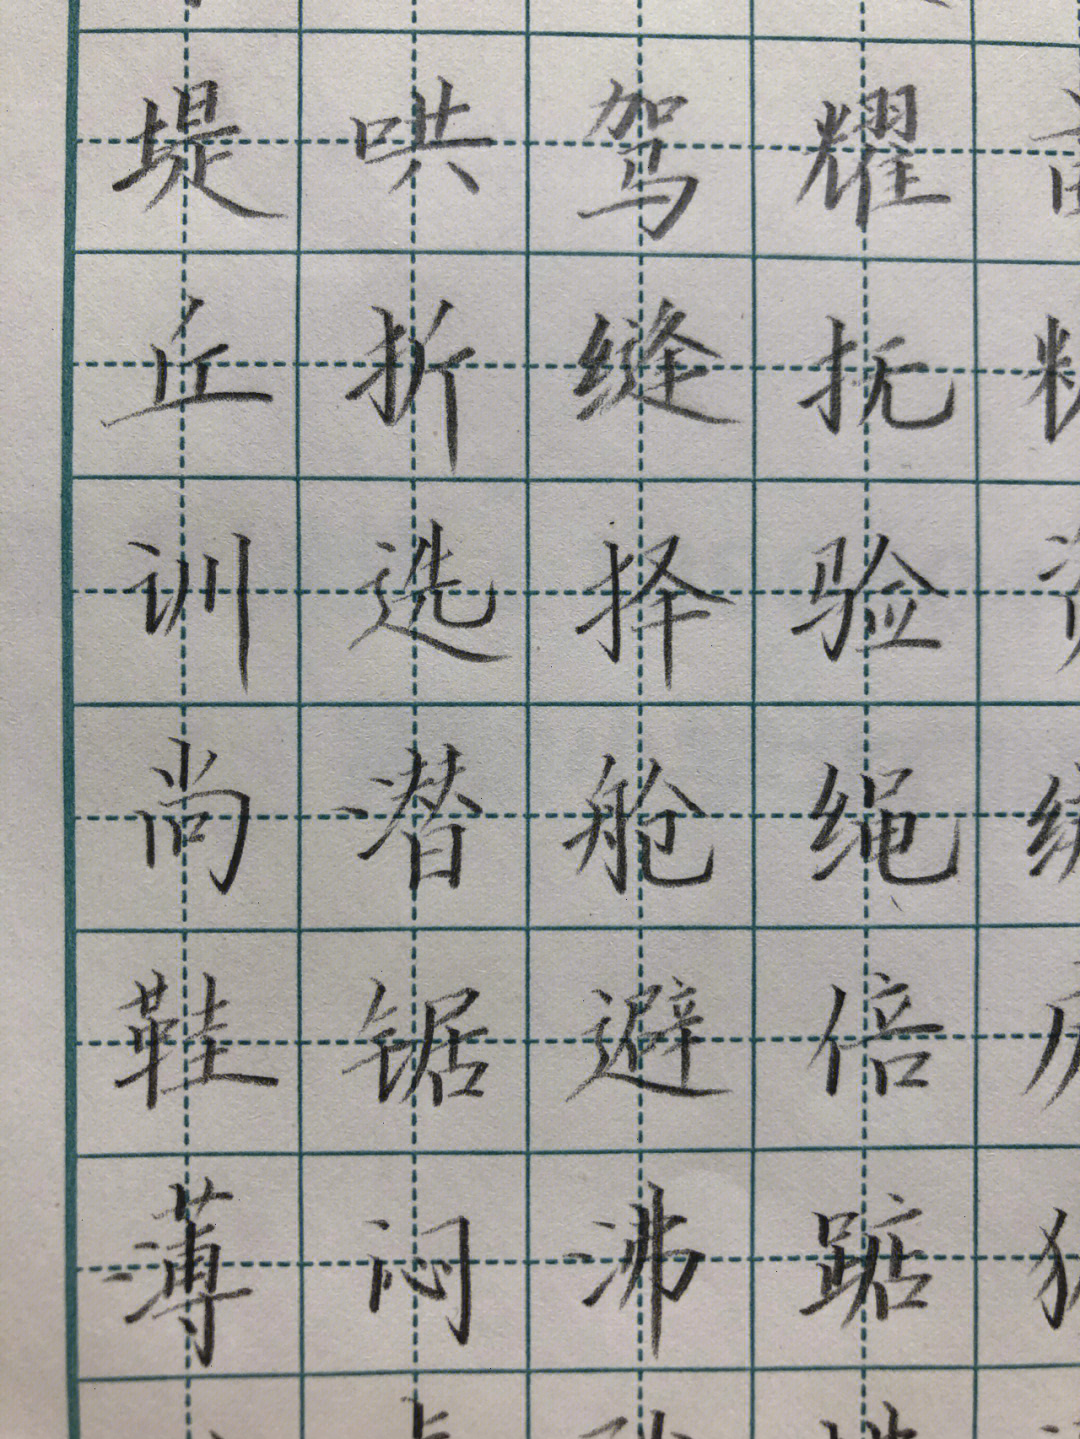 堤哄驾耀
丘折缝抚
训选择验
尚潜舱绳
鞋锯避倍
薄闷沸踮